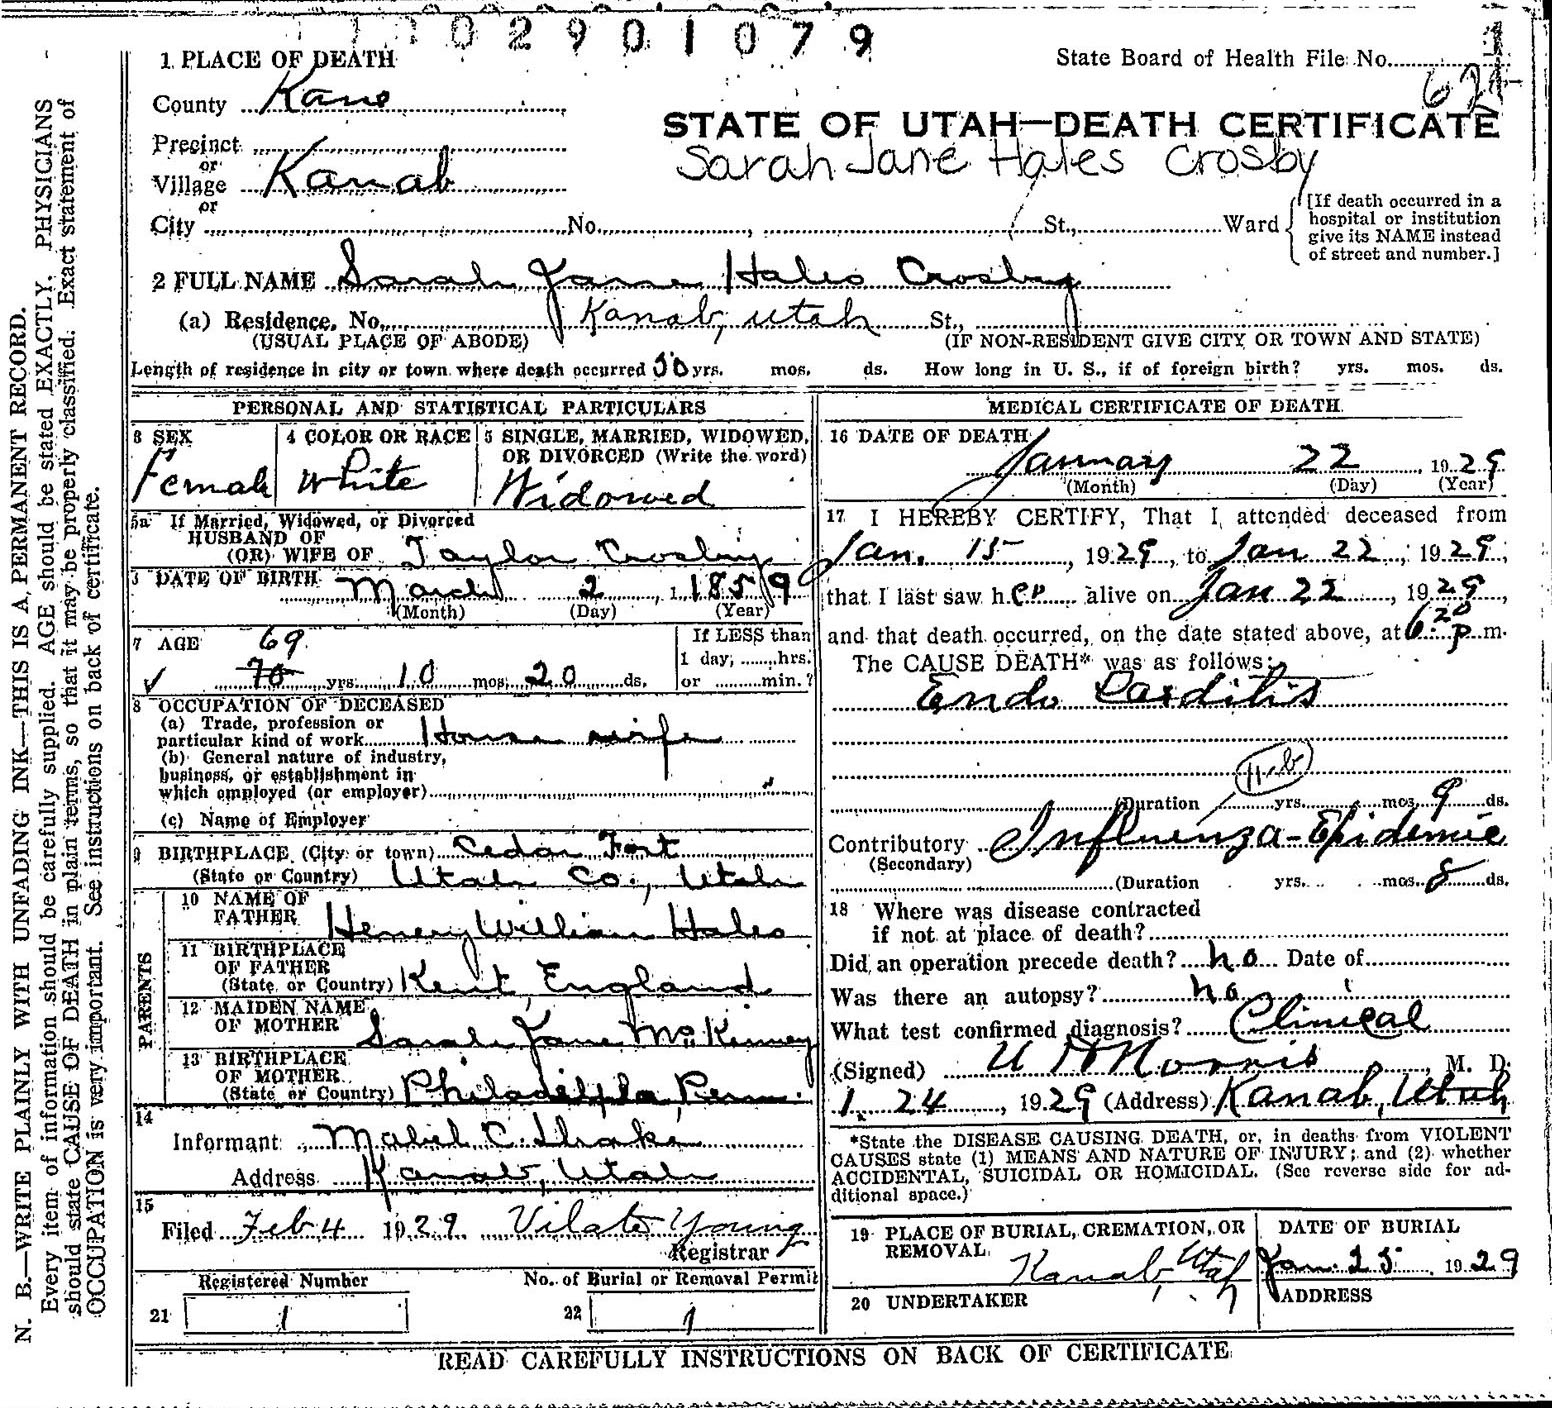 02901079
1 PLACE OF DEATH
State Board of Health File No.
County Kane
STATE OF UTAH—DEATH CERTIFICATE
Precinct
or
Sarah Jane Hales Crosby
Village Kanab
or
City No. St., Ward
[If death occurred in a
hospital or institution
give its NAME instead
of street and number.]
2 FULL NAME Sarah Jane Hales Crosby
(a) Residence, No. Kanab, Utah St.,
(USUAL PLACE OF ABODE) (IF NON-RESIDENT GIVE CITY OR TOWN AND STATE)
Length of residence in city or town where death occurred 50 yrs. mos. ds. How long in U. S., if of foreign birth? yrs. mos. ds.
PERSONAL AND STATISTICAL PARTICULARS
3 SEX
Female
4 COLOR OR RACE
White
5 SINGLE, MARRIED, WIDOWED,
OR DIVORCED (Write the word)
Widowed
5a If Married, Widowed, or Divorced
HUSBAND OF
(OR) WIFE OF Taylor Crosby
DATE OF BIRTH March 2, 1859
(Month) (Day) (Year)
7 AGE 69
70 yrs 10 mos. 20 ds.
If LESS than
1 day, ......hrs.
or ......min.?
8 OCCUPATION OF DECEASED
(a) Trade, profession or
particular kind of work House wife
(b) General nature of industry,
business, or establishment in
which employed (or employer)
(c) Name of Employer
9 BIRTHPLACE (City or town) Cedar Fort
(State or Country) Utah Co., Utah
PARENTS
10 NAME OF
FATHER Henery William Hales
11 BIRTHPLACE
OF FATHER
(State or Country) Kent, England
12 MAIDEN NAME
OF MOTHER Sarah Jane McKinney
13 BIRTHPLACE
OF MOTHER
(State or Country) Philadelpla, Penn.
14
Informant Mabel C.
Address Kanab, Utah
15
Filed Feb 4 1929 Vilate Young
Registrar
Registered Number No. of Burial or Removal Permit
21 1 22 1
MEDICAL CERTIFICATE OF DEATH
16 DATE OF DEATH
January 22, 1929
(Month) (Day) (Year)
17 I HEREBY CERTIFY, That I attended deceased from
Jan. 15, 1929, to Jan 22, 1929,
that I last saw her alive on Jan 22, 1929,
and that death occurred, on the date stated above, at 6:20 p.m.
The CAUSE DEATH* was as follows:
Endo Carditis
11-b
(Duration yrs. mos. 9 ds.
Contributory Influenza-Epidemic
(Secondary)
(Duration yrs. mos. 8 ds.
18 Where was disease contracted
if not at place of death?
Did an operation precede death? no Date of
Was there an autopsy? no
What test confirmed diagnosis? Clinical
(Signed) Norris, M. D.
1. 24, 1929 (Address) Kanab, Utah
*State the DISEASE CAUSING DEATH, or, in deaths from VIOLENT
CAUSES state (1) MEANS AND NATURE OF INJURY; and (2) whether
ACCIDENTAL, SUICIDAL OR HOMICIDAL. (See reverse side for ad-
ditional space.)
19 PLACE OF BURIAL, CREMATION, OR
REMOVAL
Kanab, Utah
DATE OF BURIAL
Jan. 25, 1929
20 UNDERTAKER
ADDRESS
READ CAREFULLY INSTRUCTIONS ON BACK OF CERTIFICATE
N. B.—WRITE PLAINLY WITH UNFADING INK—THIS IS A PERMANENT RECORD.
Every item of information should be carefully supplied. AGE should be stated EXACTLY. PHYSICIANS
should state CAUSE OF DEATH in plain terms, so that it may be properly classified. Exact statement of
OCCUPATION is very important. See instructions on back of certificate.